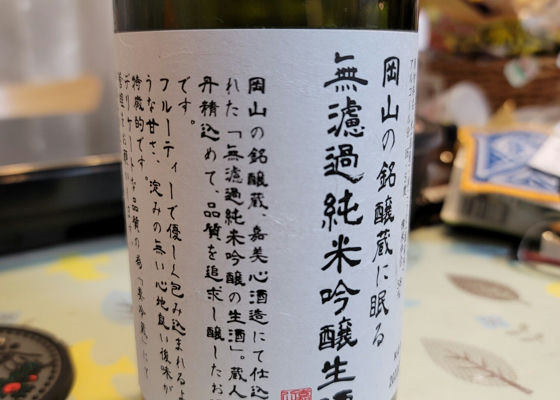 岡山の銘醸蔵に眠る
無濾過純米吟醸生酒
岡山の銘醸蔵、嘉美心酒造にて仕込
れた「無濾過純米吟醸の生酒」。蔵人
丹精込めて、品質を追求し醸したお
です。
フルーティーで優しく包み込まれるよ
うな甘さ、淀みの無い心地良い後味が
特徴的です。
デリケートな品質の為「要冷蔵」にて